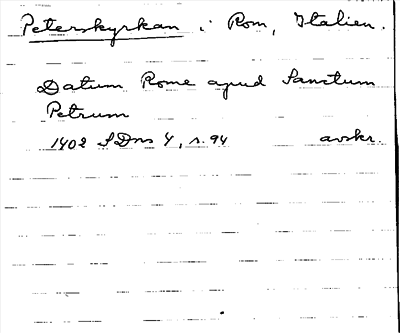 Peterskyrkan i Rom, Italien.
Datum Rome apud Sanctum
Petrum
1402 SDns 4, s. 94 avskr.